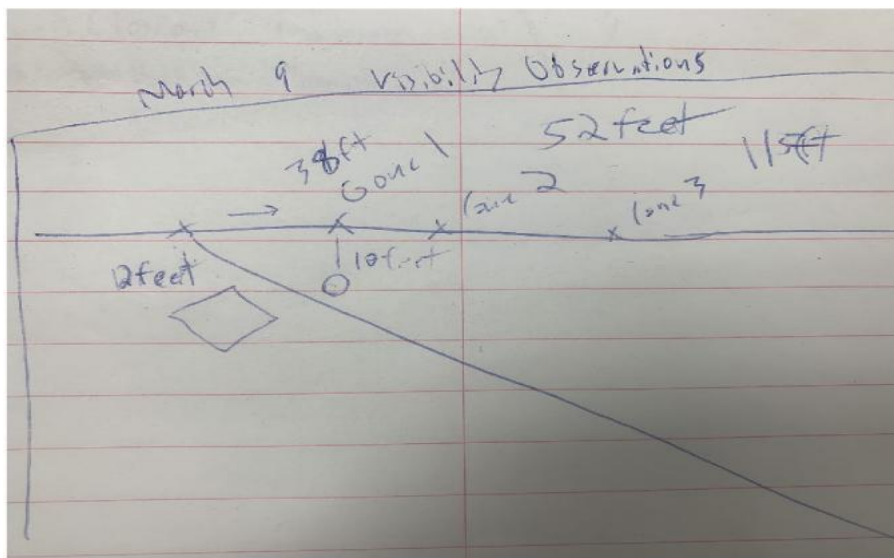 March 9 Visibility Observations
52 feet
38ft
Cone 1
Cone 2
Cone 3
12 feet
10 feet